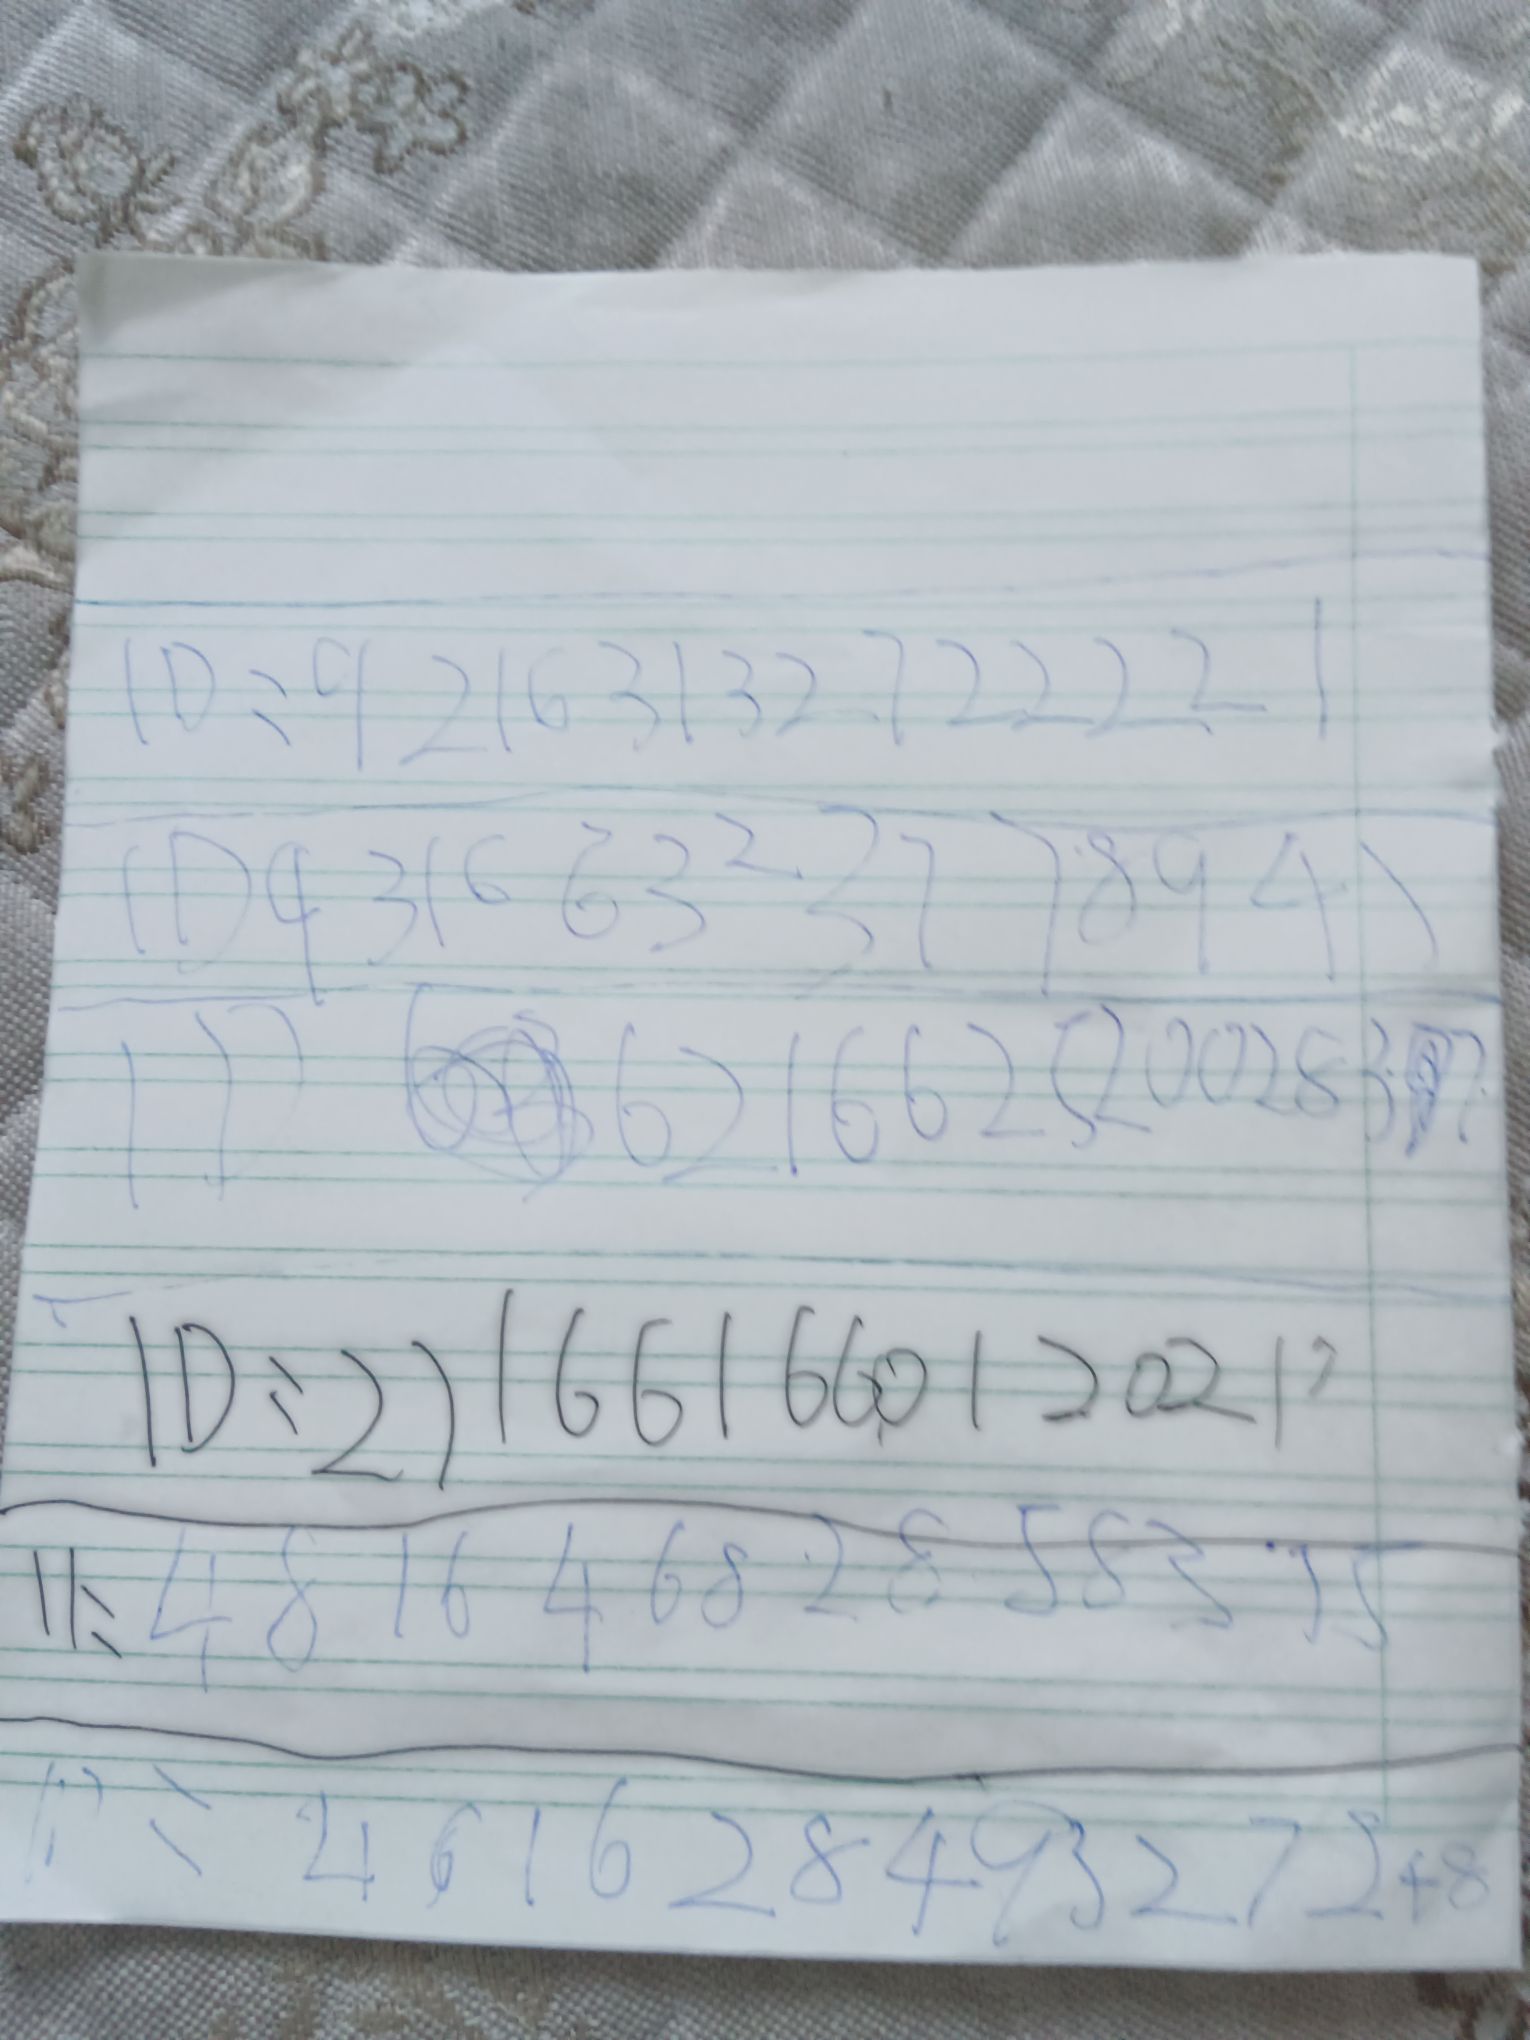 ID:92163132722221
ID43166323778941
6216625200283
ID:2116616601202１
48164682858375
461628493272+8